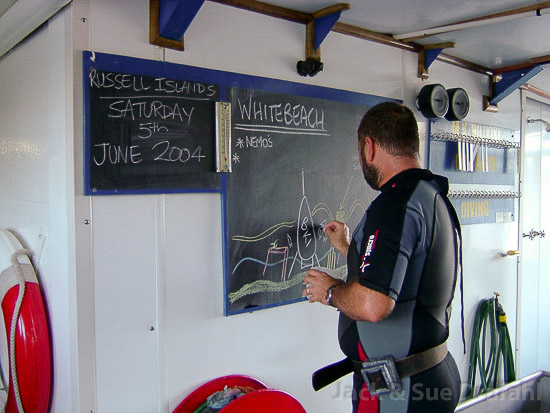 RUSSELL ISLANDS
SATURDAY
5th
JUNE 2004
WHITEBEACH
* NEMO'S
*
DIVING
Jack & Sue Drafahl